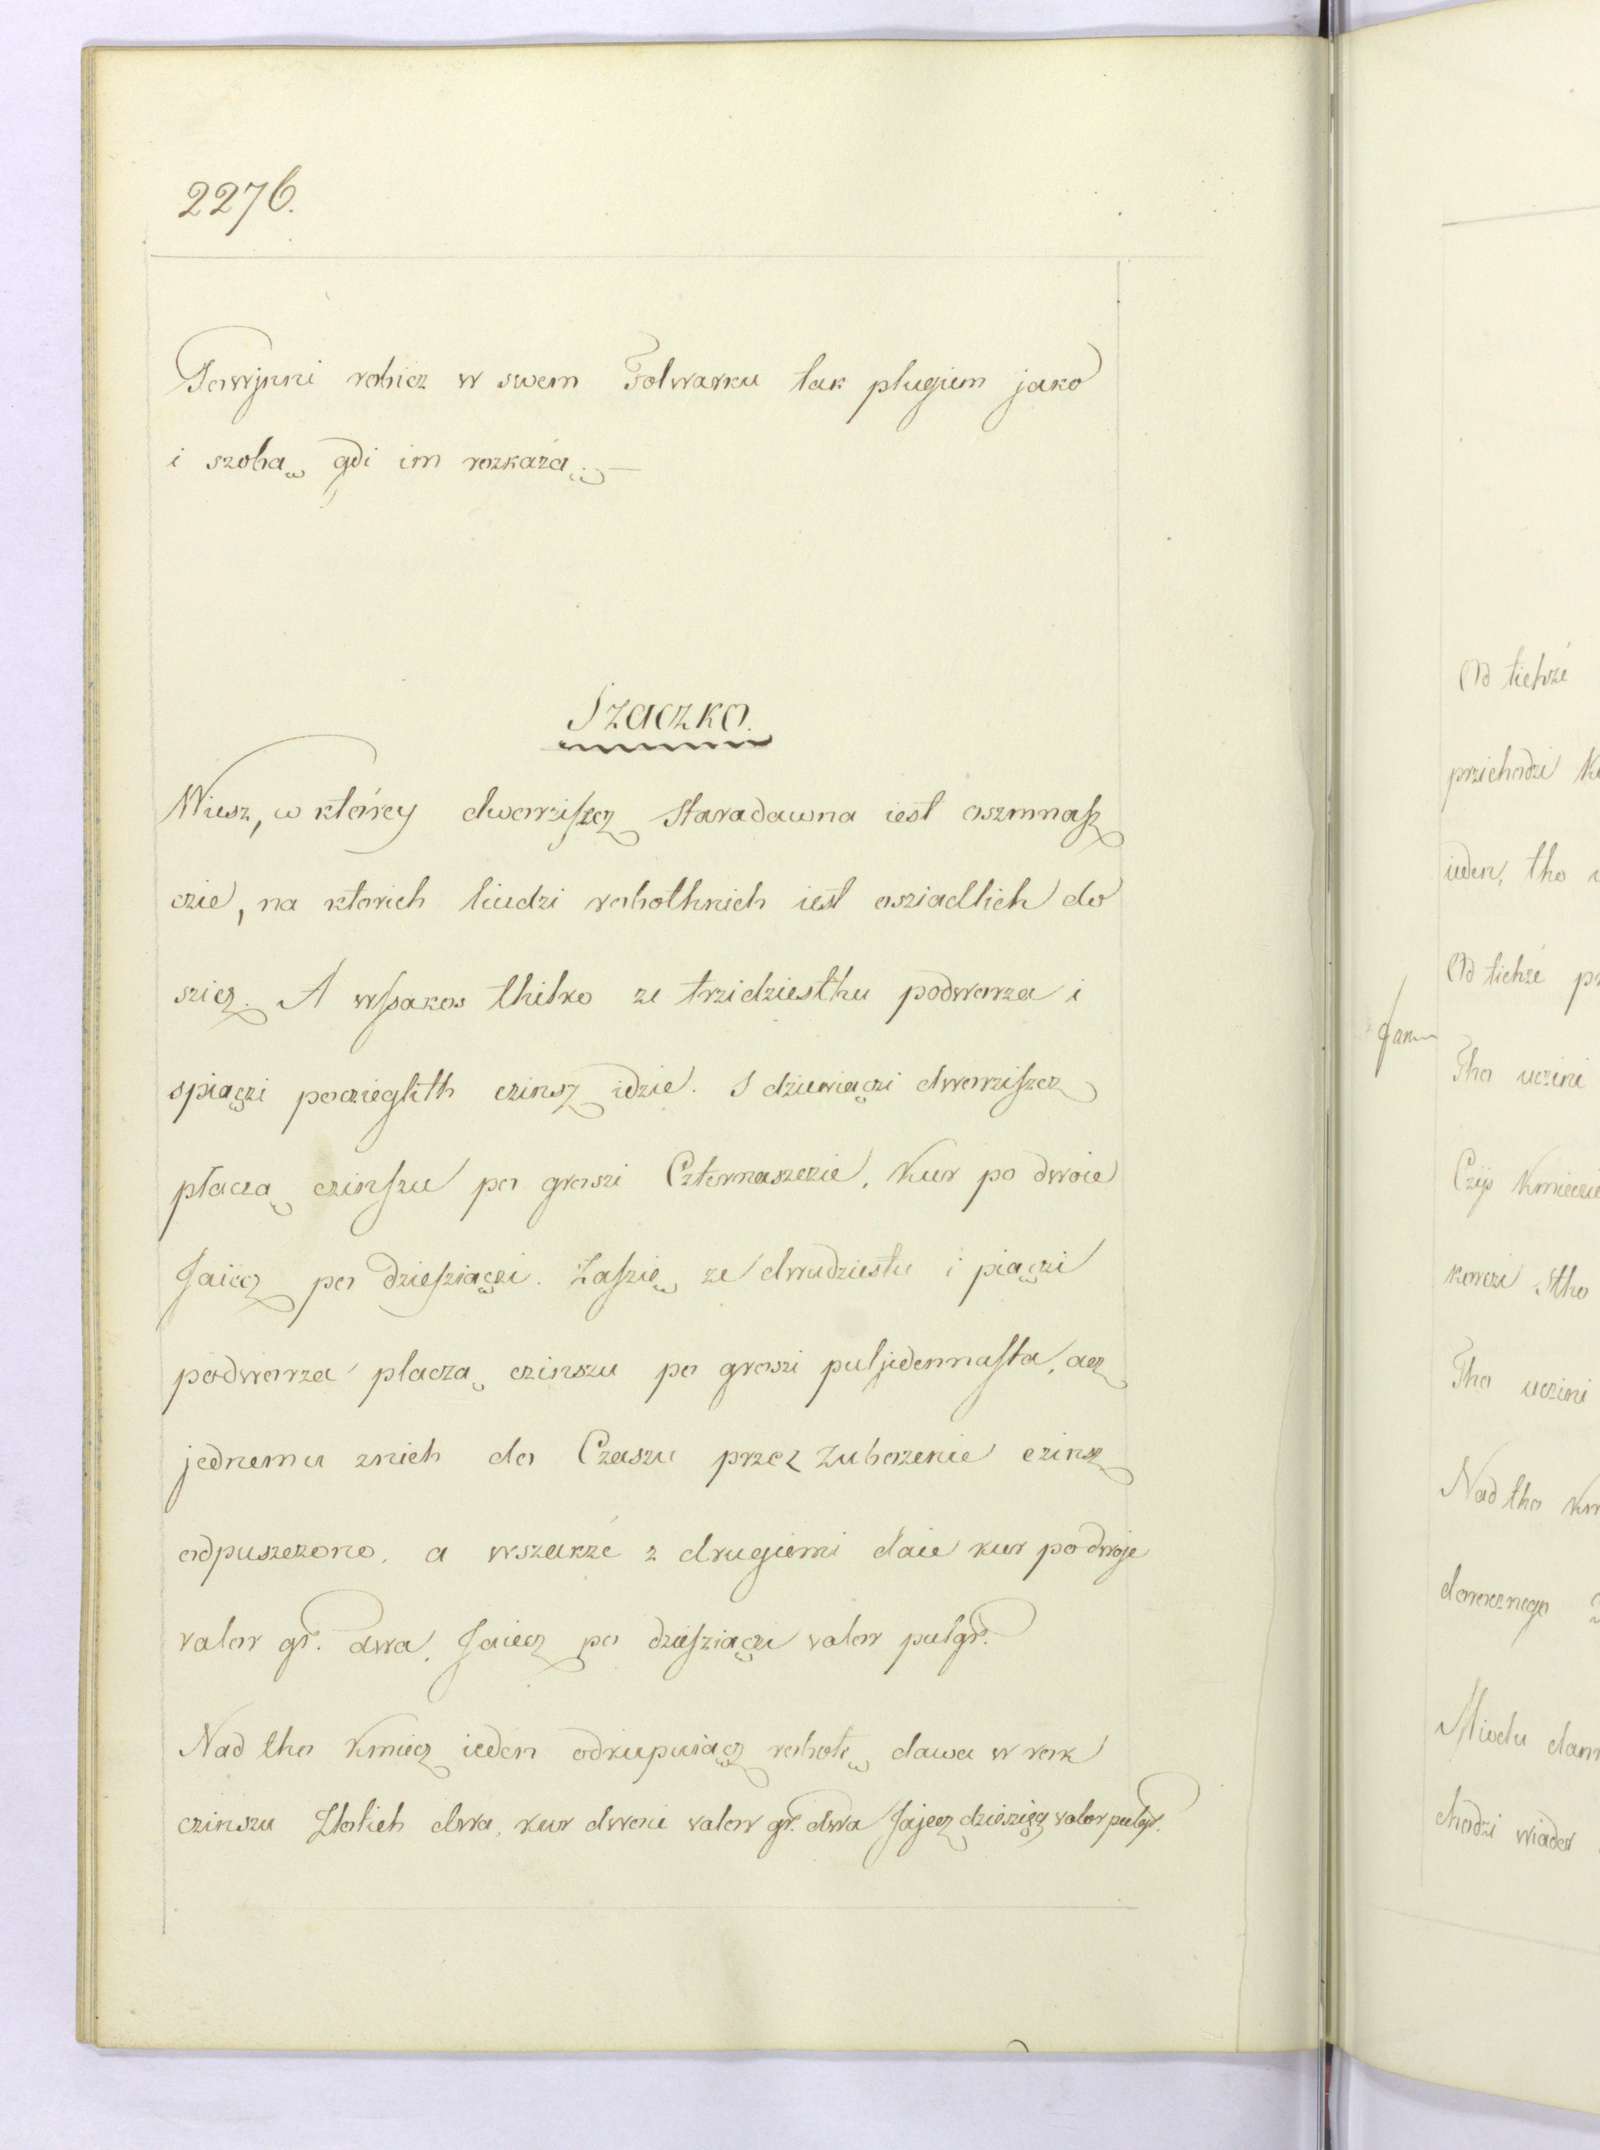 2276.
Powÿnni robicz w swem Folwarku tak plugiem jako
i szobą gdi im rozkażą. —
Szaczko.
Wiesz, w ktorey dworziszcz staradawna iest oszmnasz
czie, na ktorich liudzi robothnich iest osziadlich do
szicz. A wszakos thilko ze trzidziesthu podworza i
spiączi poczieglith czinsz idzie. I dziewiączi dworziszcz
płaczą czinszu po groszi Czternaszczie, Kur po dwoie
Jaiecz po dziesziączi. Zaszię ze dwudziestu i piączi
podworza płaczą czinszu po groszi puljedennasta, acz
jednemu znich do Czaszu przez zubozenie czinsz
odpuszczono, a wszakże z drugiemi daie kur po dwoje
valor gr. dwa, Jaiecz po dziesziączi valor pulgr.
Nad tho Kmiecz ieden odkupuiącz robotę dawa w rok
czinszu Zlotich dwa, kur dwoie valor gr. dwa Jajecz dziesięcz valor pulgr.
Od tichże
przichodzi
ieden, tho
Od tichże
Tho uczini
Czÿ Kmieczie
korczi Stho
Tho uczini
Nad tho
dorocznego
Miodu
chodzi wiader